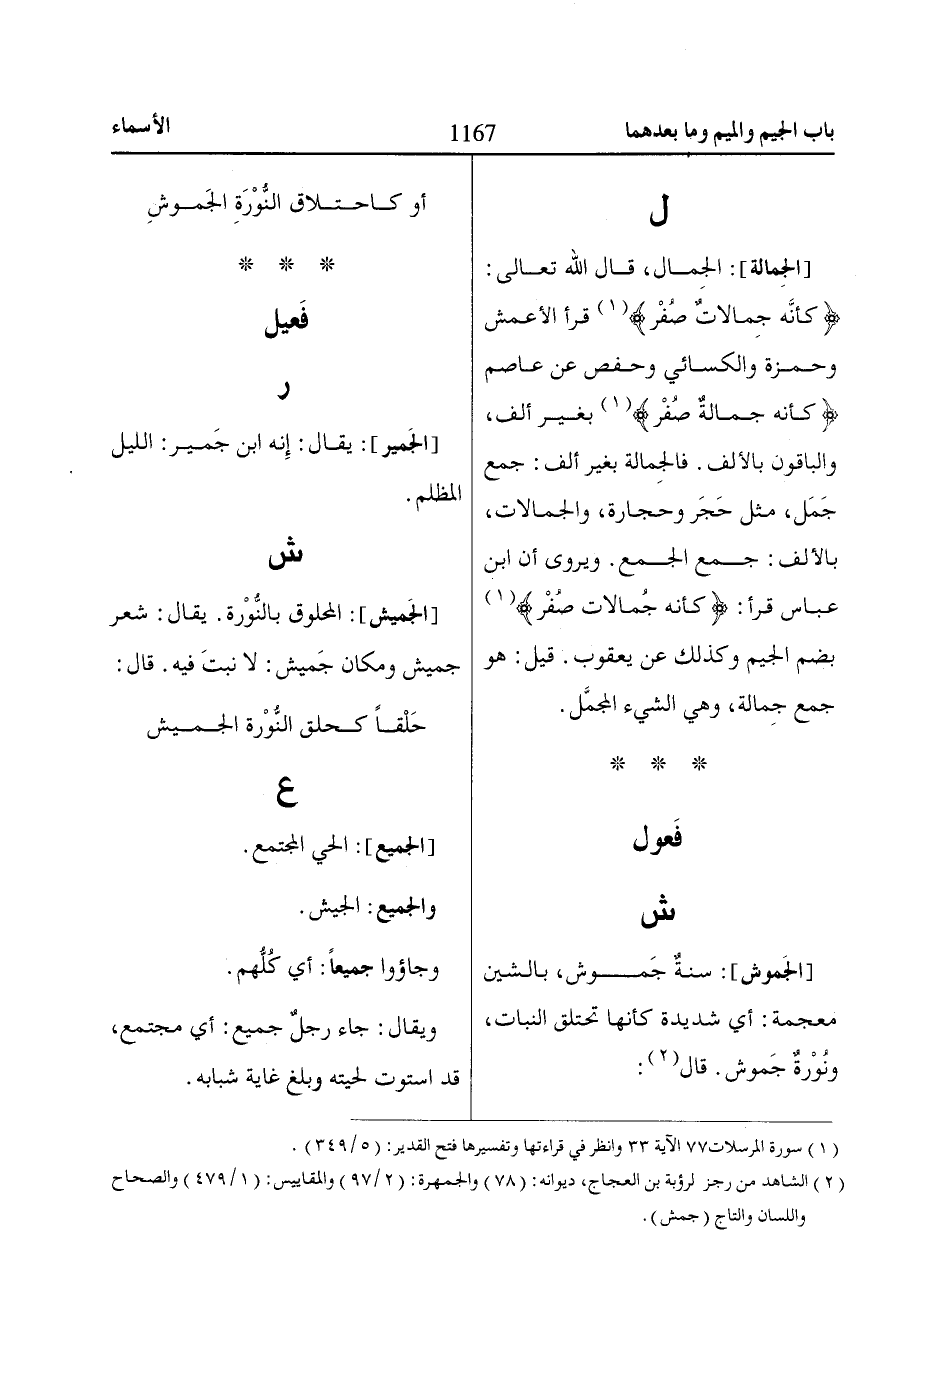 باب الجيم والميم وما بعدهما
1167
الأسماء
ل
[الجِمالة]: الجِمال، قال الله تعالى:
﴿كأنَّه جِمالاتٌ صُفْر﴾(١) قرأ الأعمش
وحمزة والكسائي وحفص عن عاصم
﴿كأنه جمالةٌ صُفْر﴾(١) بغير ألف،
والباقون بالألف. فالجِمالة بغير ألف: جمع
جَمَل، مثل حَجَر وحجارة، والجمالات،
بالألف: جمع الجمع. ويروى أن ابن
عباس قرأ: ﴿كأنه جُمالات صُفْر﴾(١)
بضم الجيم وكذلك عن يعقوب. قيل: هو
جمع جمالة، وهي الشيء المجمَّل.
* * *
فَعول
ش
[الجَموش]: سنةٌ جَموش، بالشين
معجمة: أي شديدة كأنها تحتلق النبات،
ونُوْرةٌ جَموش. قال(٢):
أو كاحتلاق النُّوْرَةِ الجَموشِ
* * *
فَعيل
ر
[الجَمير]: يقال: إِنه ابن جَمير: الليل
المظلم.
ش
[الجَميش]: المحلوق بالنُّوْرة. يقال: شعر
جميش ومكان جَميش: لا نبتَ فيه. قال:
حَلْقاً كحلق النُّوْرة الجميش
ع
[الجميع]: الحي المجتمع.
والجميع: الجيش.
وجاؤوا جميعاً: أي كُلُّهم.
ويقال: جاء رجلٌ جميع: أي مجتمع،
قد استوت لحيته وبلغ غاية شبابه.
(١) سورة المرسلات ٧٧ الآية ٣٣ وانظر في قراءتها وتفسيرها فتح القدير: (٥/٣٤٩).
(٢) الشاهد من رجز لرؤبة بن العجاج، ديوانه: (٧٨) والجمهرة: (٢/٩٧) والمقاييس: (١/٤٧٩) والصحاح
واللسان والتاج (جمش).